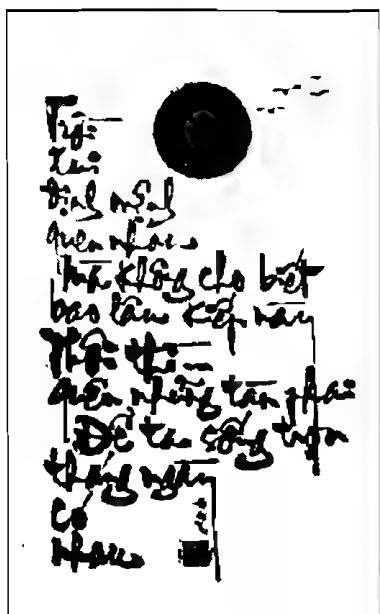 Trời
Xui
định mệnh
quen nhau
Mà không cho biết
bao lâu kiếp này
Thôi thì
quên những tàn phai
Để ta sống trọn
tháng ngày
có
nhau